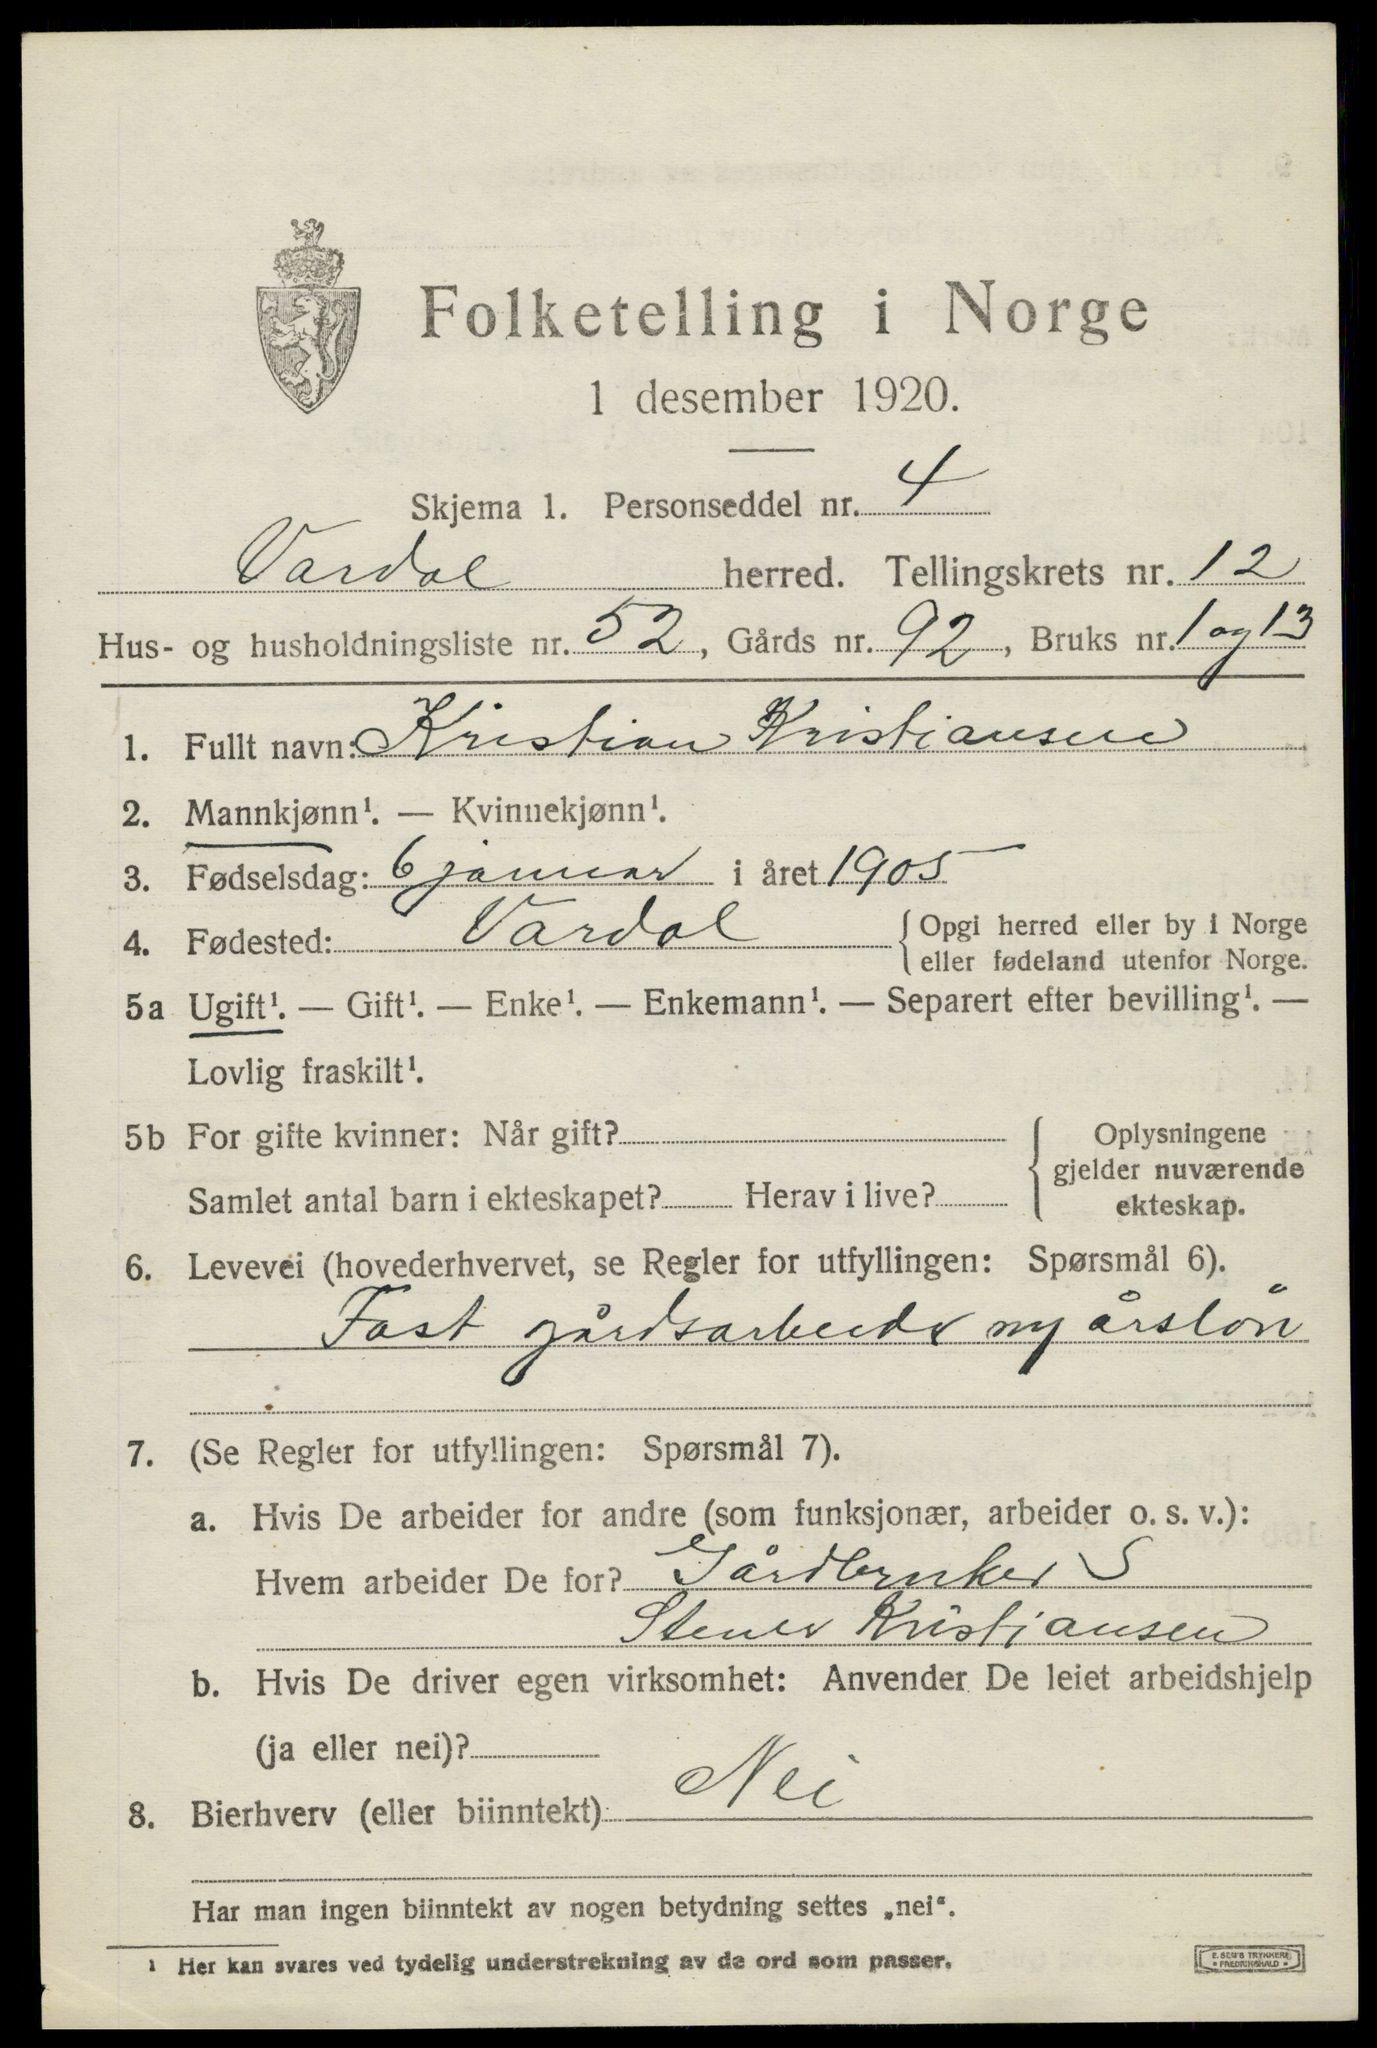 Folketelling i Norge
1 desember 1920.
Skjema 1. Personseddel nr. 4
Vardal herred. Tellingskrets nr. 12
Hus- og husholdningsliste nr. 52, Gårds nr. 92, Bruks nr. 1 og 13
1. Fullt navn: Kristian Kristiansen
2. Mannkjønn¹. — Kvinnekjønn¹.
3. Fødselsdag: 6 januar i året 1905
4. Fødested: Vardal { Opgi herred eller by i Norge
eller fødeland utenfor Norge.
5a Ugift¹. — Gift¹. — Enke¹. — Enkemann¹. — Separert efter bevilling¹. —
Lovlig fraskilt¹.
5b For gifte kvinner: Når gift? { Oplysningene
gjelder nuværende
Samlet antal barn i ekteskapet? Herav i live? ekteskap.
6. Levevei (hovederhvervet, se Regler for utfyllingen: Spørsmål 6).
Fast gårdsarbeider m/ årslön
7. (Se Regler for utfyllingen: Spørsmål 7).
a. Hvis De arbeider for andre (som funksjonær, arbeider o. s. v.):
Hvem arbeider De for? Gårdbruker S
Stener Kristiansen
b. Hvis De driver egen virksomhet: Anvender De leiet arbeidshjelp
(ja eller nei)?
8. Bierhverv (eller biinntekt) Nei
Har man ingen biinntekt av nogen betydning settes „nei“.
¹ Her kan svares ved tydelig understrekning av de ord som passer.
E. SEM'S TRYKKERI
FREDRIKSHALD